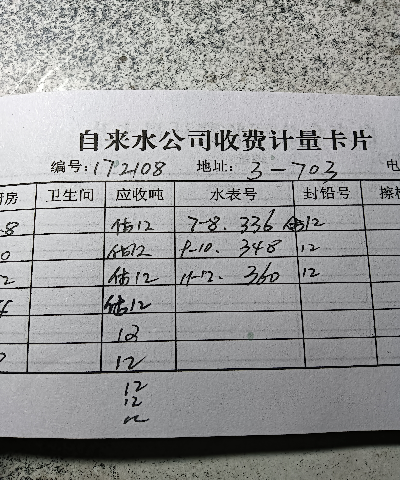 自来水公司收费计量卡片
编号: 172108 地址: 3-703 电
房 卫生间 应收吨 水表号 封铅号 擦
8 估12 7-8. 336 估12
0 估12 9-10. 348 12
2 估12 11-12. 360 12
估12
12
12
12
12